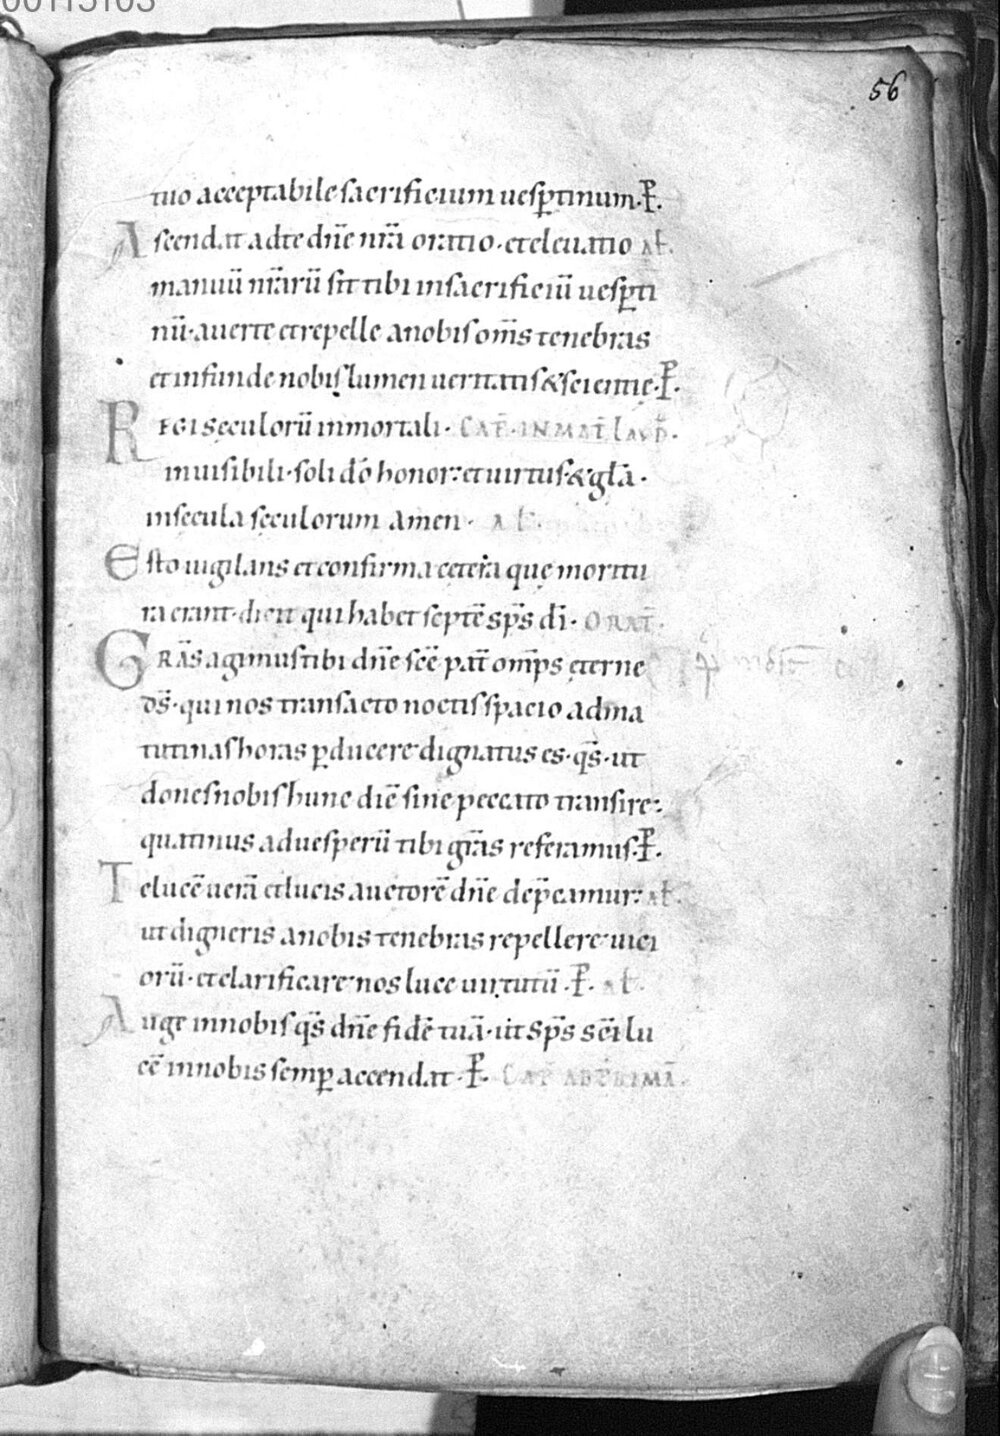 00115103
56
tuo acceptabile sacrificium uesꝑtinum. P̵.
Ascendat ad te dn̄e nr̄a oratio. et eleuatio Al̄.
manuū nr̄arū sit tibi in sacrificiū uesꝑti
nū. auerte et repelle a nobis om̄s tenebras
et infunde nobis lumen ueritatis & scientię. P̵.
REGI sęculorū inmortali. CAP̄. IN MAT̄ LAVD̄.
inuisibili. soli dō honor: et uirtus. & gl̄a.
in sęcula sęculorum amen. Al̄.
Esto uigilans et confirma cetera quę moritu
ra erant. dicit qui habet septē sp̄s dī. ORAT̄.
GRĀS agimus tibi dn̄e sc̄e pat̄ om̄ps ęterne
ds̄. qui nos transacto noctis spacio ad ma
tutinas horas ꝑducere dignatus es. qs̄. ut
dones nobis hunc diē sine peccato transire:
quatinus ad uesperū tibi gr̄as referamus. P̵.
Te lucē uerā et lucis auctorē dn̄e dep̄camur: al̄.
ut digneris a nobis tenebras repellere uici
orū. et clarificare nos luce uirtutū. P̵. al̄.
Auge in nobis qs̄ dn̄e fidē tuā. ut sp̄s sc̄i lu
cē in nobis semꝑ accendat. P̵. CAP̄ AD PRIMĀ.